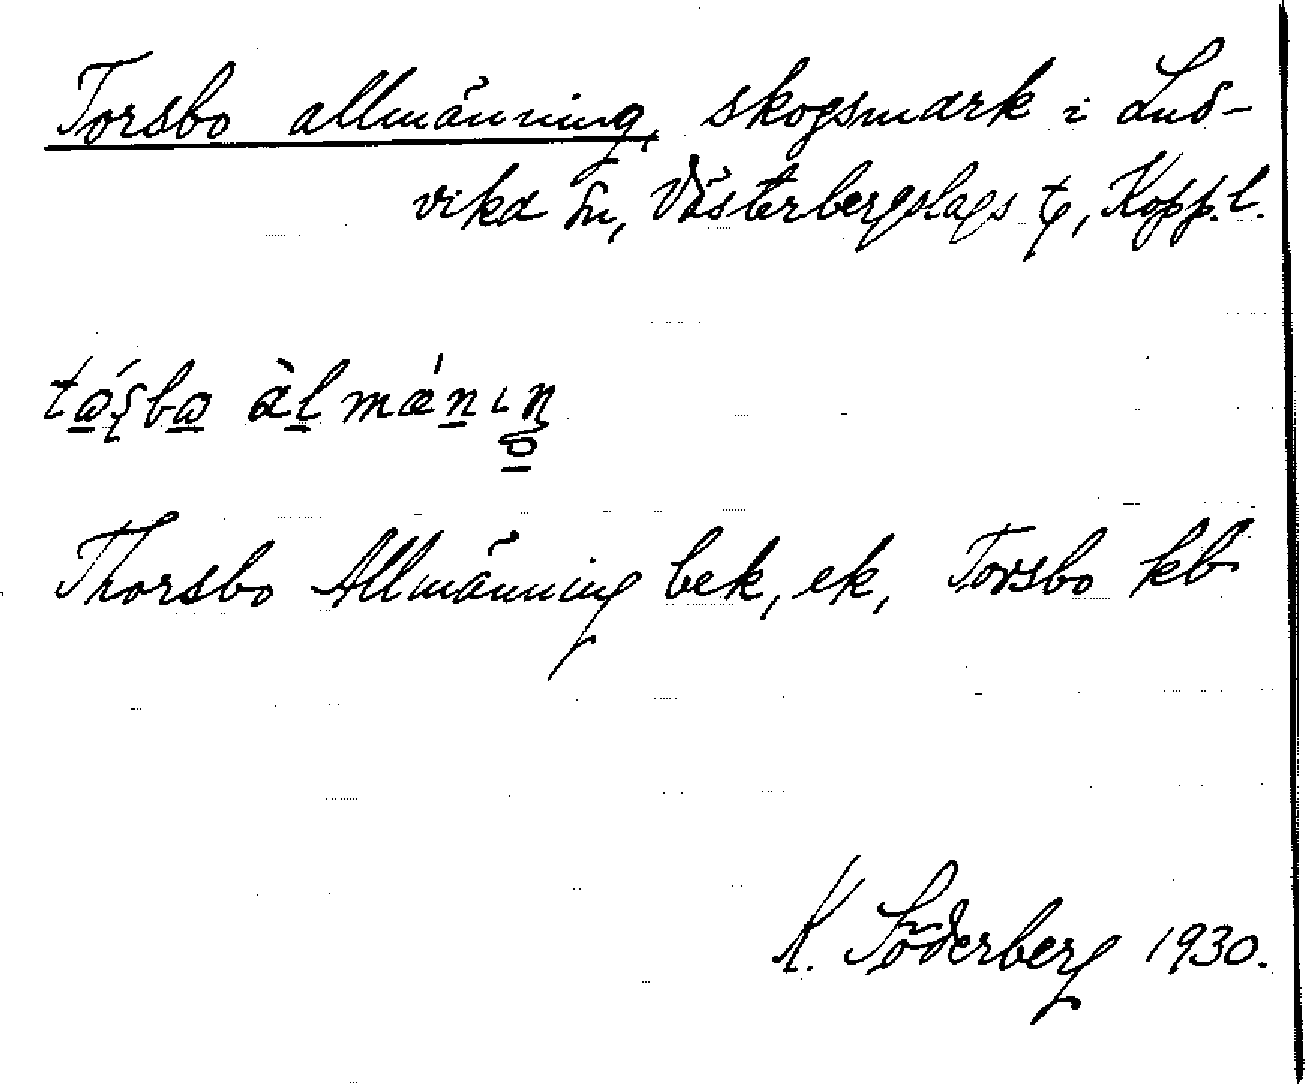 Torsbo allmänning, skogsmark i Lud-
vika sn, Västerbergslags tg, Kopp. l.
Thorsbo Allmänning bek, ek, Torsbo kb
K. Söderberg 1930.